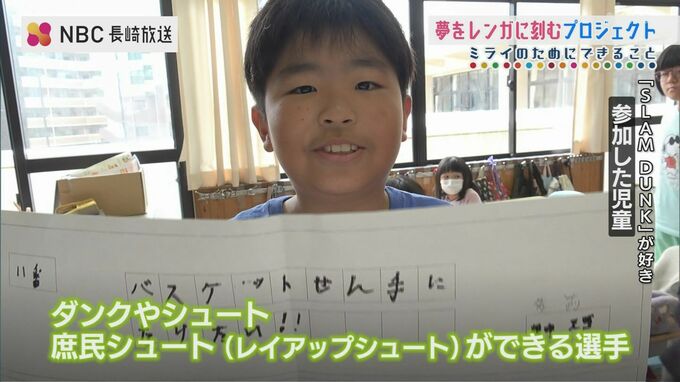 NBC 長崎放送
夢をレンガに刻むプロジェクト
ミライのためにできること
「SLAM DUNK」が好き
参加した児童
11番
バスケットせん手に
なりたい!!
ダンクやシュート
庶民シュート(レイアップシュート)ができる選手